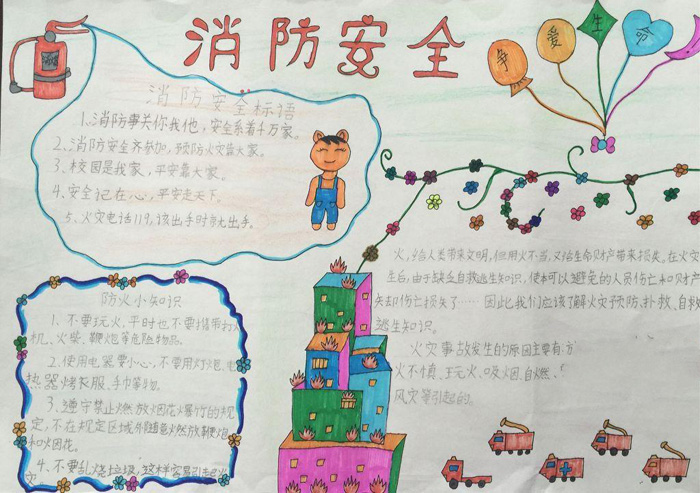 消防安全
争爱生命
消防安全标语
1、消防事关你我他，安全系着千万家。
2、消防安全齐参加，预防火灾靠大家。
3、校园是我家，平安靠大家。
4、安全记在心，平安走天下。
5、火灾电话119，该出手时就出手。
火，给人类带来文明，但用火不当，又给生命财产带来损失。在火灾
生后，由于缺乏自救逃生知识，使本可以避免的人员伤亡和财产
失去了伤亡损失了……因此我们应该了解火灾预防、扑救、自救
逃生知识。
火灾事故发生的原因主要有：方
火不慎、玩火、吸烟、自燃、
风灾等引起的。
防火小知识
1、不要玩火，平时也不要携带打火
机、火柴、鞭炮等危险物品。
2、使用电器要小心，不要用灯炮、电
热器烤衣服、手巾等物。
3、遵守禁止燃放烟花爆竹的规
定，不在规定区域外随意燃放鞭炮
和烟花。
4、不要乱烧垃圾，这样容易引起火
灾。